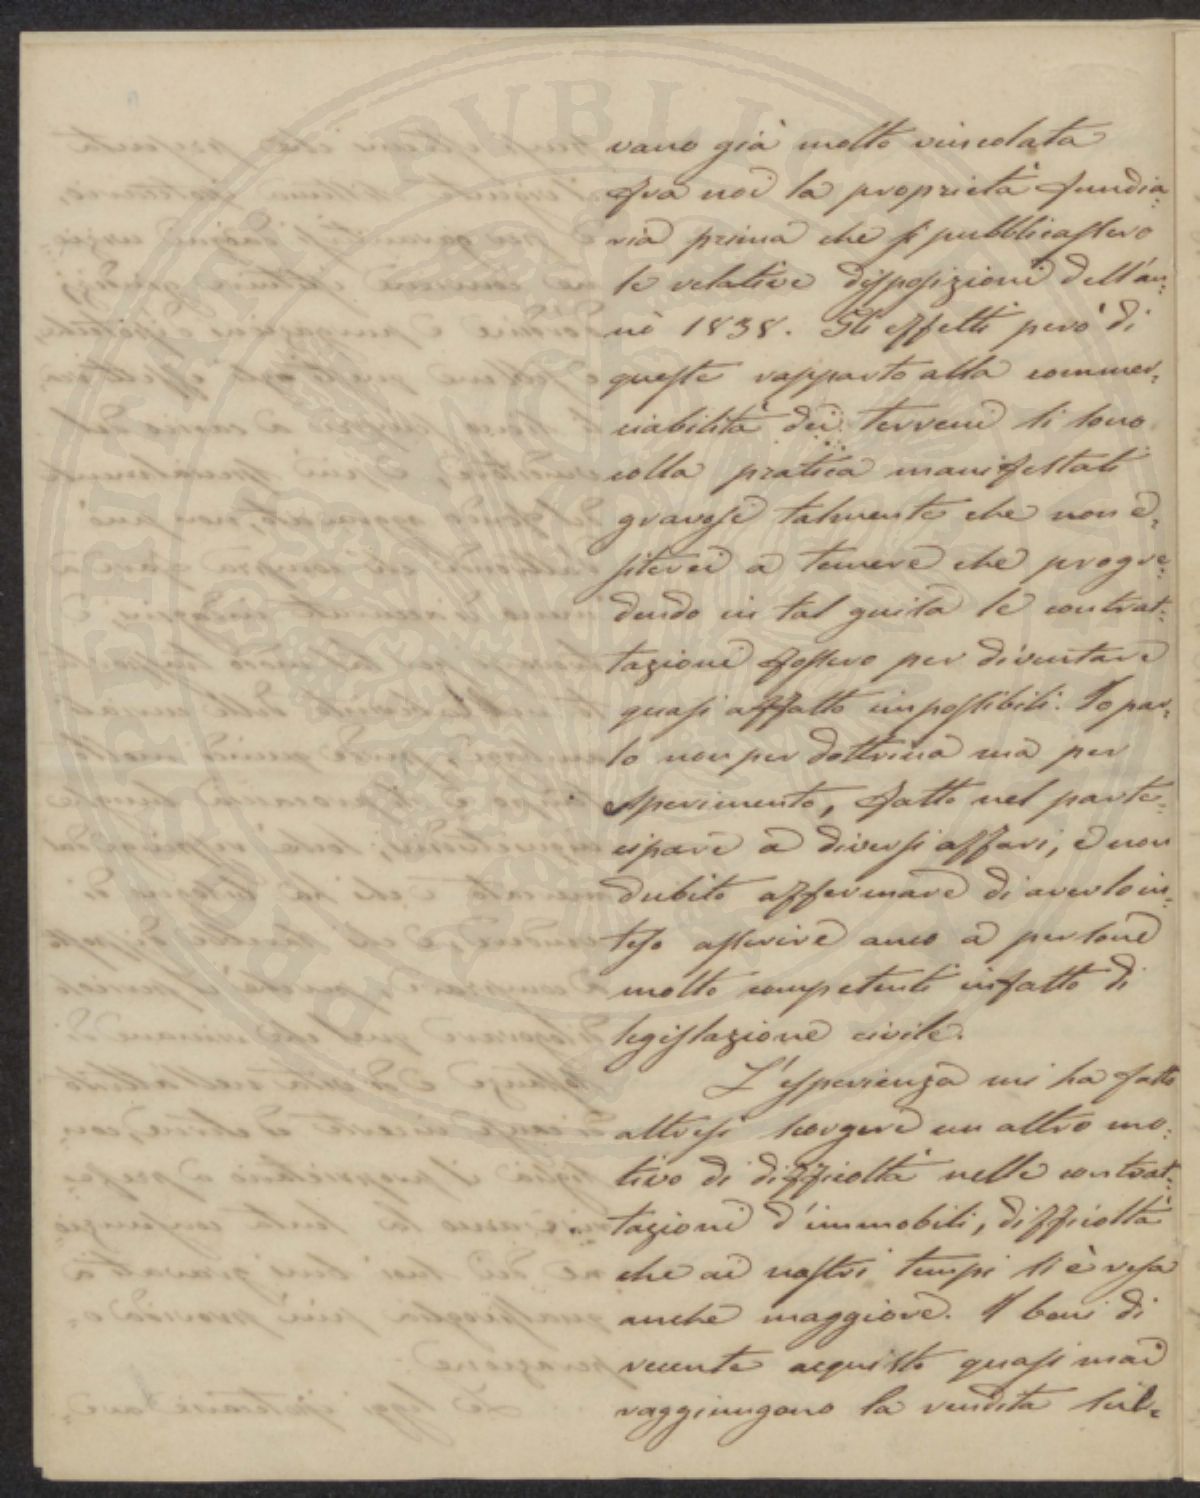 vano già molto vincolata
fra noi la proprietà fundia=
ria prima che si pubblicassero
le relative disposizioni dell'an=
no 1838. Gli effetti però di
queste rapporto alla commer=
ciabilità dei terreni si sono
colla pratica manifestati
gravosi talmente che non e=
siterei a temere che progre=
dendo in tal guisa le contrat=
tazioni fossero per diventare
quasi affatto impossibili. Io par=
lo non per dottrina ma per
esperimento, fatto nel parte=
cipare a diversi affari, e non
dubito affermare di averlo in=
teso asserire anco a persone
molto competenti in fatto di
legislazione civile.
L'esperienza mi ha fatto
altresi scorgere un altro mo=
tivo di difficoltà nelle contrat=
tazioni d'immobili, difficoltà
che ai nostri tempi si è resa
anche maggiore. I beni di
recente acquisto quasi mai
raggiungono la vendita sul=